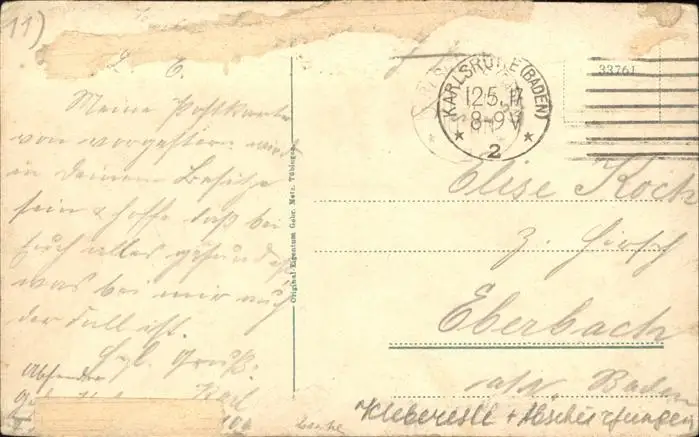 11)
L. E.
Meine Postkarte
von vorgestern wird
in deinem Besitze
sein & hoffe daß bei
Euch alles gesund ist
was bei mir auch
der Fall ist.
Hzl. Gruß:
Absender
Karl
Original Eigentum Gebr. Metz, Tübingen
KARLSRUHE (BADEN)
12.5.17
8-9V
* 2 *
33761
Elise Koch
z. Hirsch
Eberbach
a/N. Baden
Klebereste + Abschürfungen